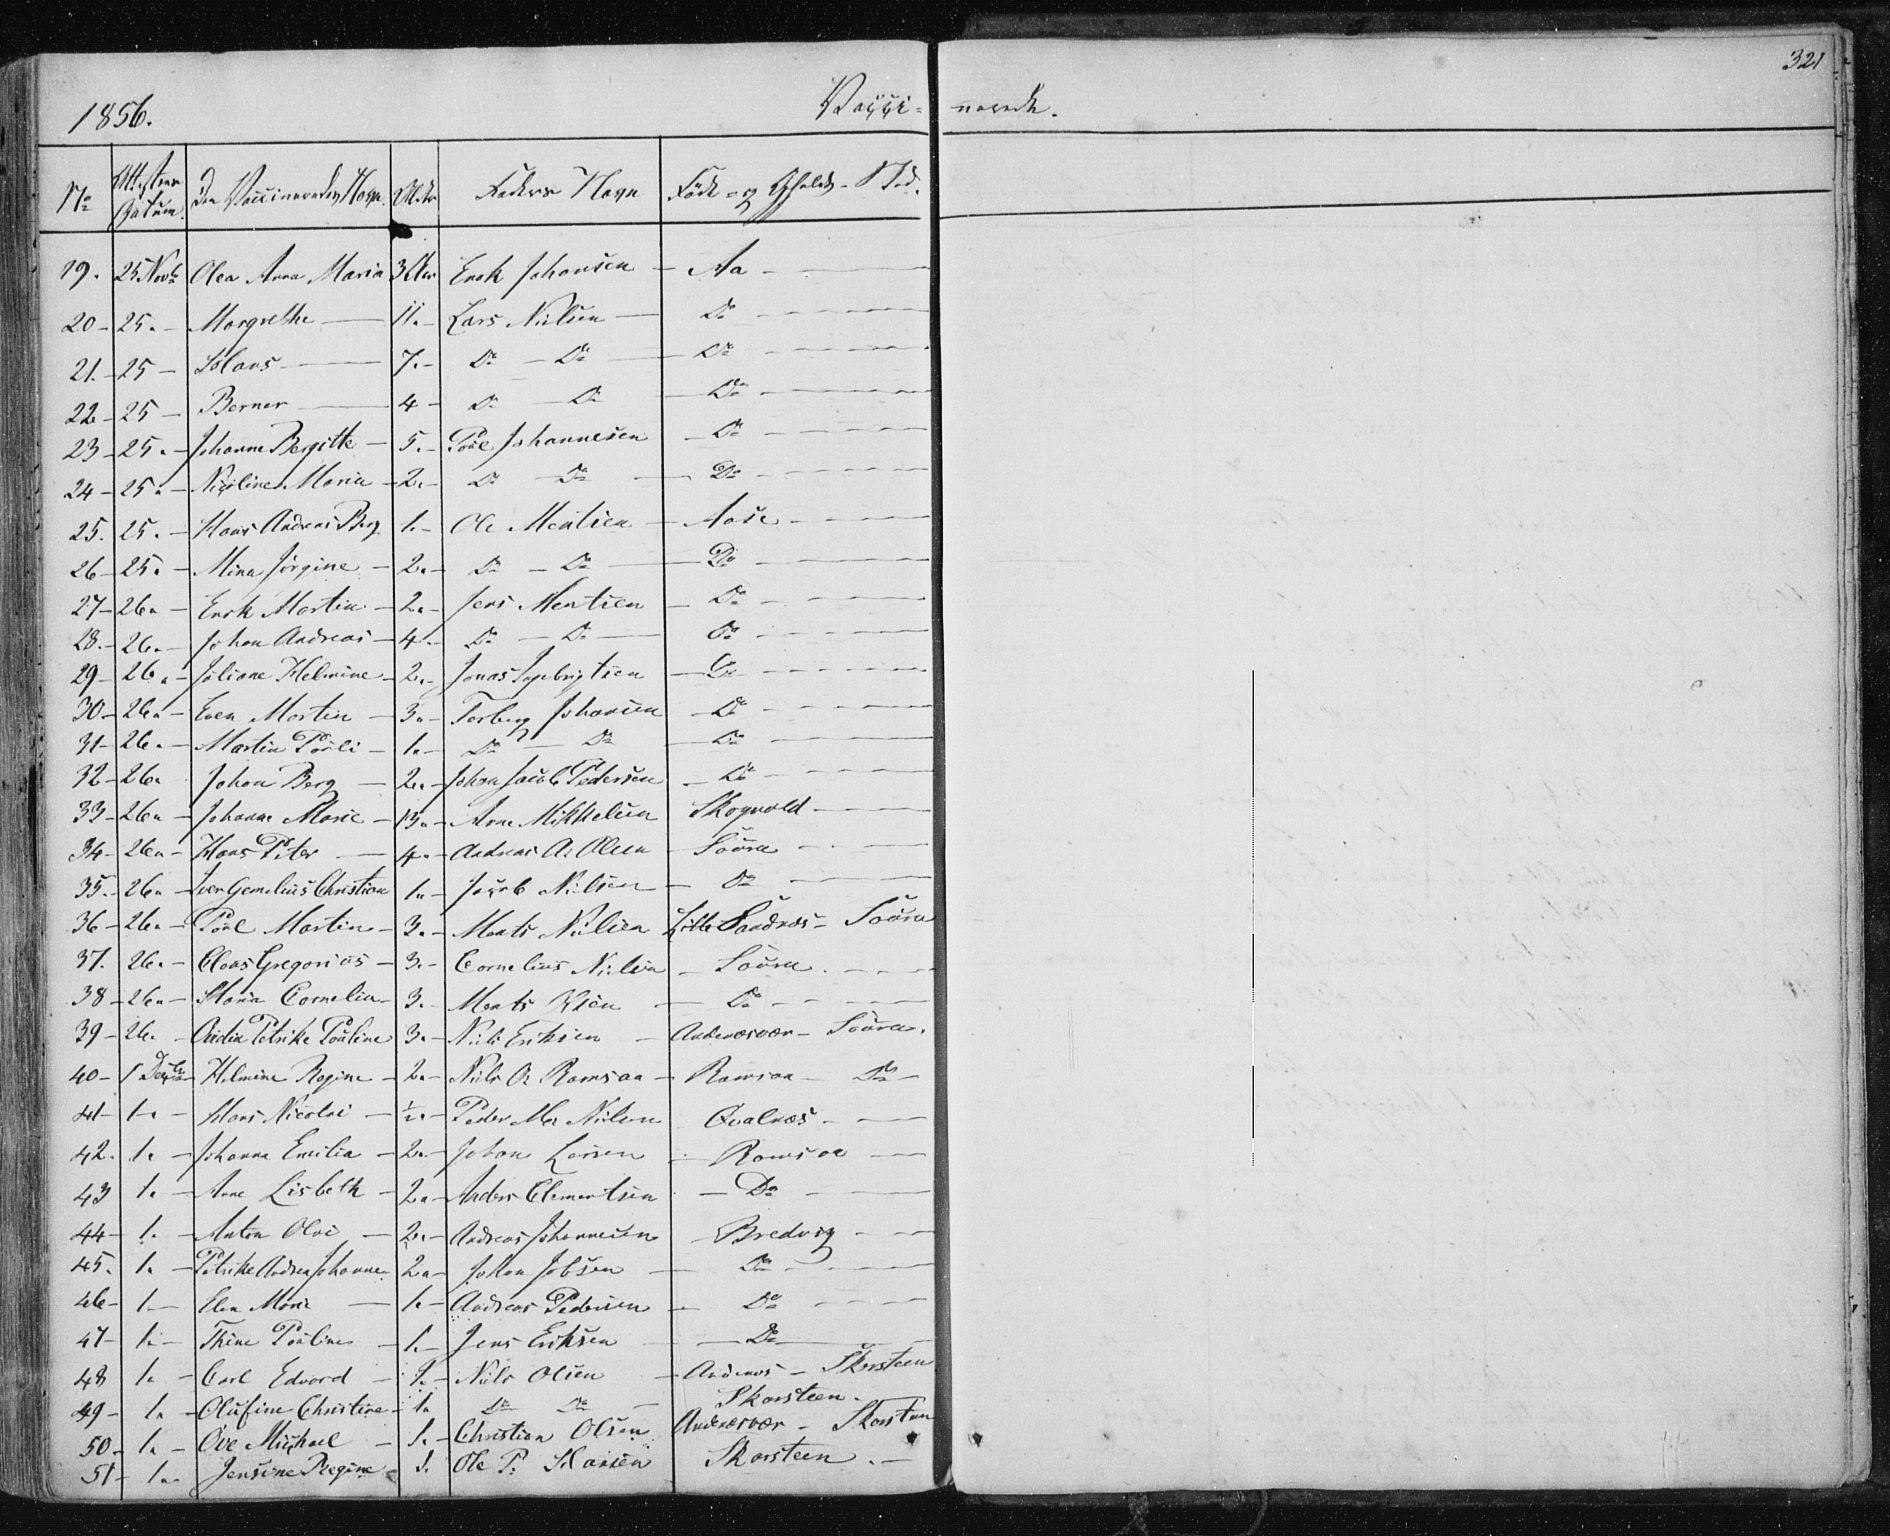 321
1856. Vacci- nerede.
No Attestens Datum. Den Vaccineredes Navn. Alder Faders Navn Føde- og Opholds-Sted.
19. 25 Novb Olea Anna Maria 3 Erik Johansen - Aa -
20 - 25. - Margrethe 11. - Lars Nielsen Do
21. - 25 - Hans 7. - Do - Do Do
22 - 25 - Berner 4 - Do - Do Do
23 - 25. - Johanne Bergitte - 5. - Poul Johannesen - Do
24 - 25. - Nicoline Maria - 2. - Do Do Do
25. 25. - Hans Andreas Berg 1. - Ole Mentsen - Aase -
26 - 25. - Mina Jørgine - 2. - Do - Do Do
27 - 26. - Erik Martin - 2. - Jens Mentsen - Do
28. - 26. - Johan Andreas - 4. - Do - Do - Do
29 - 26. - Juliane Helmine - 2. - Jonas Ingebrigtsen - Do
30 - 26. - Even Martin - 3. - Torberg Johansen - Do
31 - 26. - Martin Pauli - 1. - Do - Do - Do
32 - 26. Johan Berg - 2. - Johan Jacob Pedersen - Do
33 - 26. - Johanne Marie - 13. - Arne Mikkelsen Skogvold -
34 - 26. - Hans Peter - 4. - Andreas A. Olsen - Saura
35. - 26. - Iver Gemelius Christian 1. - Jacob Nielsen - Do
36 - 26. - Paul Martin - 3. - Ments Nielsen Lille Sandnæs - Saura
37. 26. - Claus Gregorius - 3. - Cornelius Nielsen - Saura.
38 - 26. - Maria Cornelia - 3. - Ments - Do
39 - 26. - Petrike Pauline 3. - Niels Eriksen - Andenæsvær - Saura.
40 - 1 Decb - Helmine Regine - 2. - Niels O. Ramsaa - Ramsaa - Do -
41 - 1. - Hans Nicolai - ½. - Peder Mr. Nielsen Qvalnæs -
42. 1. - Johanna Emilia - 2. - Johan Larsen - Ramsaa
43 1. - Anne Lisbeth - 2. - Anders Clementsen - Do
44 - 1. - Anton Olai - 2. - Andreas Johannesen - Bredvig
45. 1. - Petrike Andrea Johanna 2. - Johan Jobsen Do
46 - 1. - Elen Marie 1. - Andreas Pedersen - Do
47 - 1. - Thine Pauline - 1. - Jens Eriksen Do
48 1. - Carl Edvard - 1. - Niels Olsen - Andenæs - Skarsteen
49 - 1. - Olufine Christine - 1. Do Do - Skarsteen.
50 - 1. - Ove Michael - 1. - Christian Olsen Andenæsvær - Skarsteen
51 - 1. - Jensine Regine 1. Ole P. Hansen Skarsteen. -